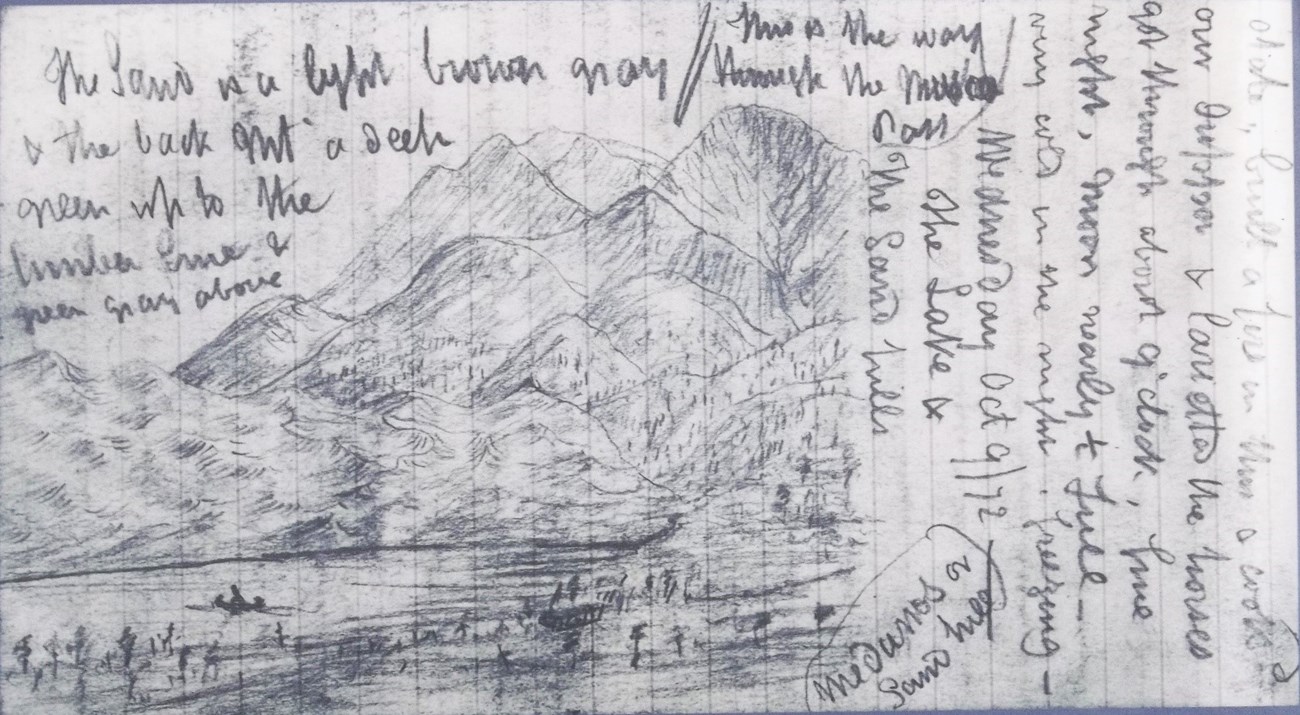 The Sand is a light brown gray
& the back gnt a deep
green up to the
timber line &
green gray above
This is the way
through the Mosca
Pass
stake, built a fire in this & cooked
our supper & larietted the horses
got through about 9 o'clock, fine
night, moon nearly ½ full —
very cold in the night. freezing —
Wednesday Oct 9/72
The Lake &
The Sand hills
Medanos
Sand hills